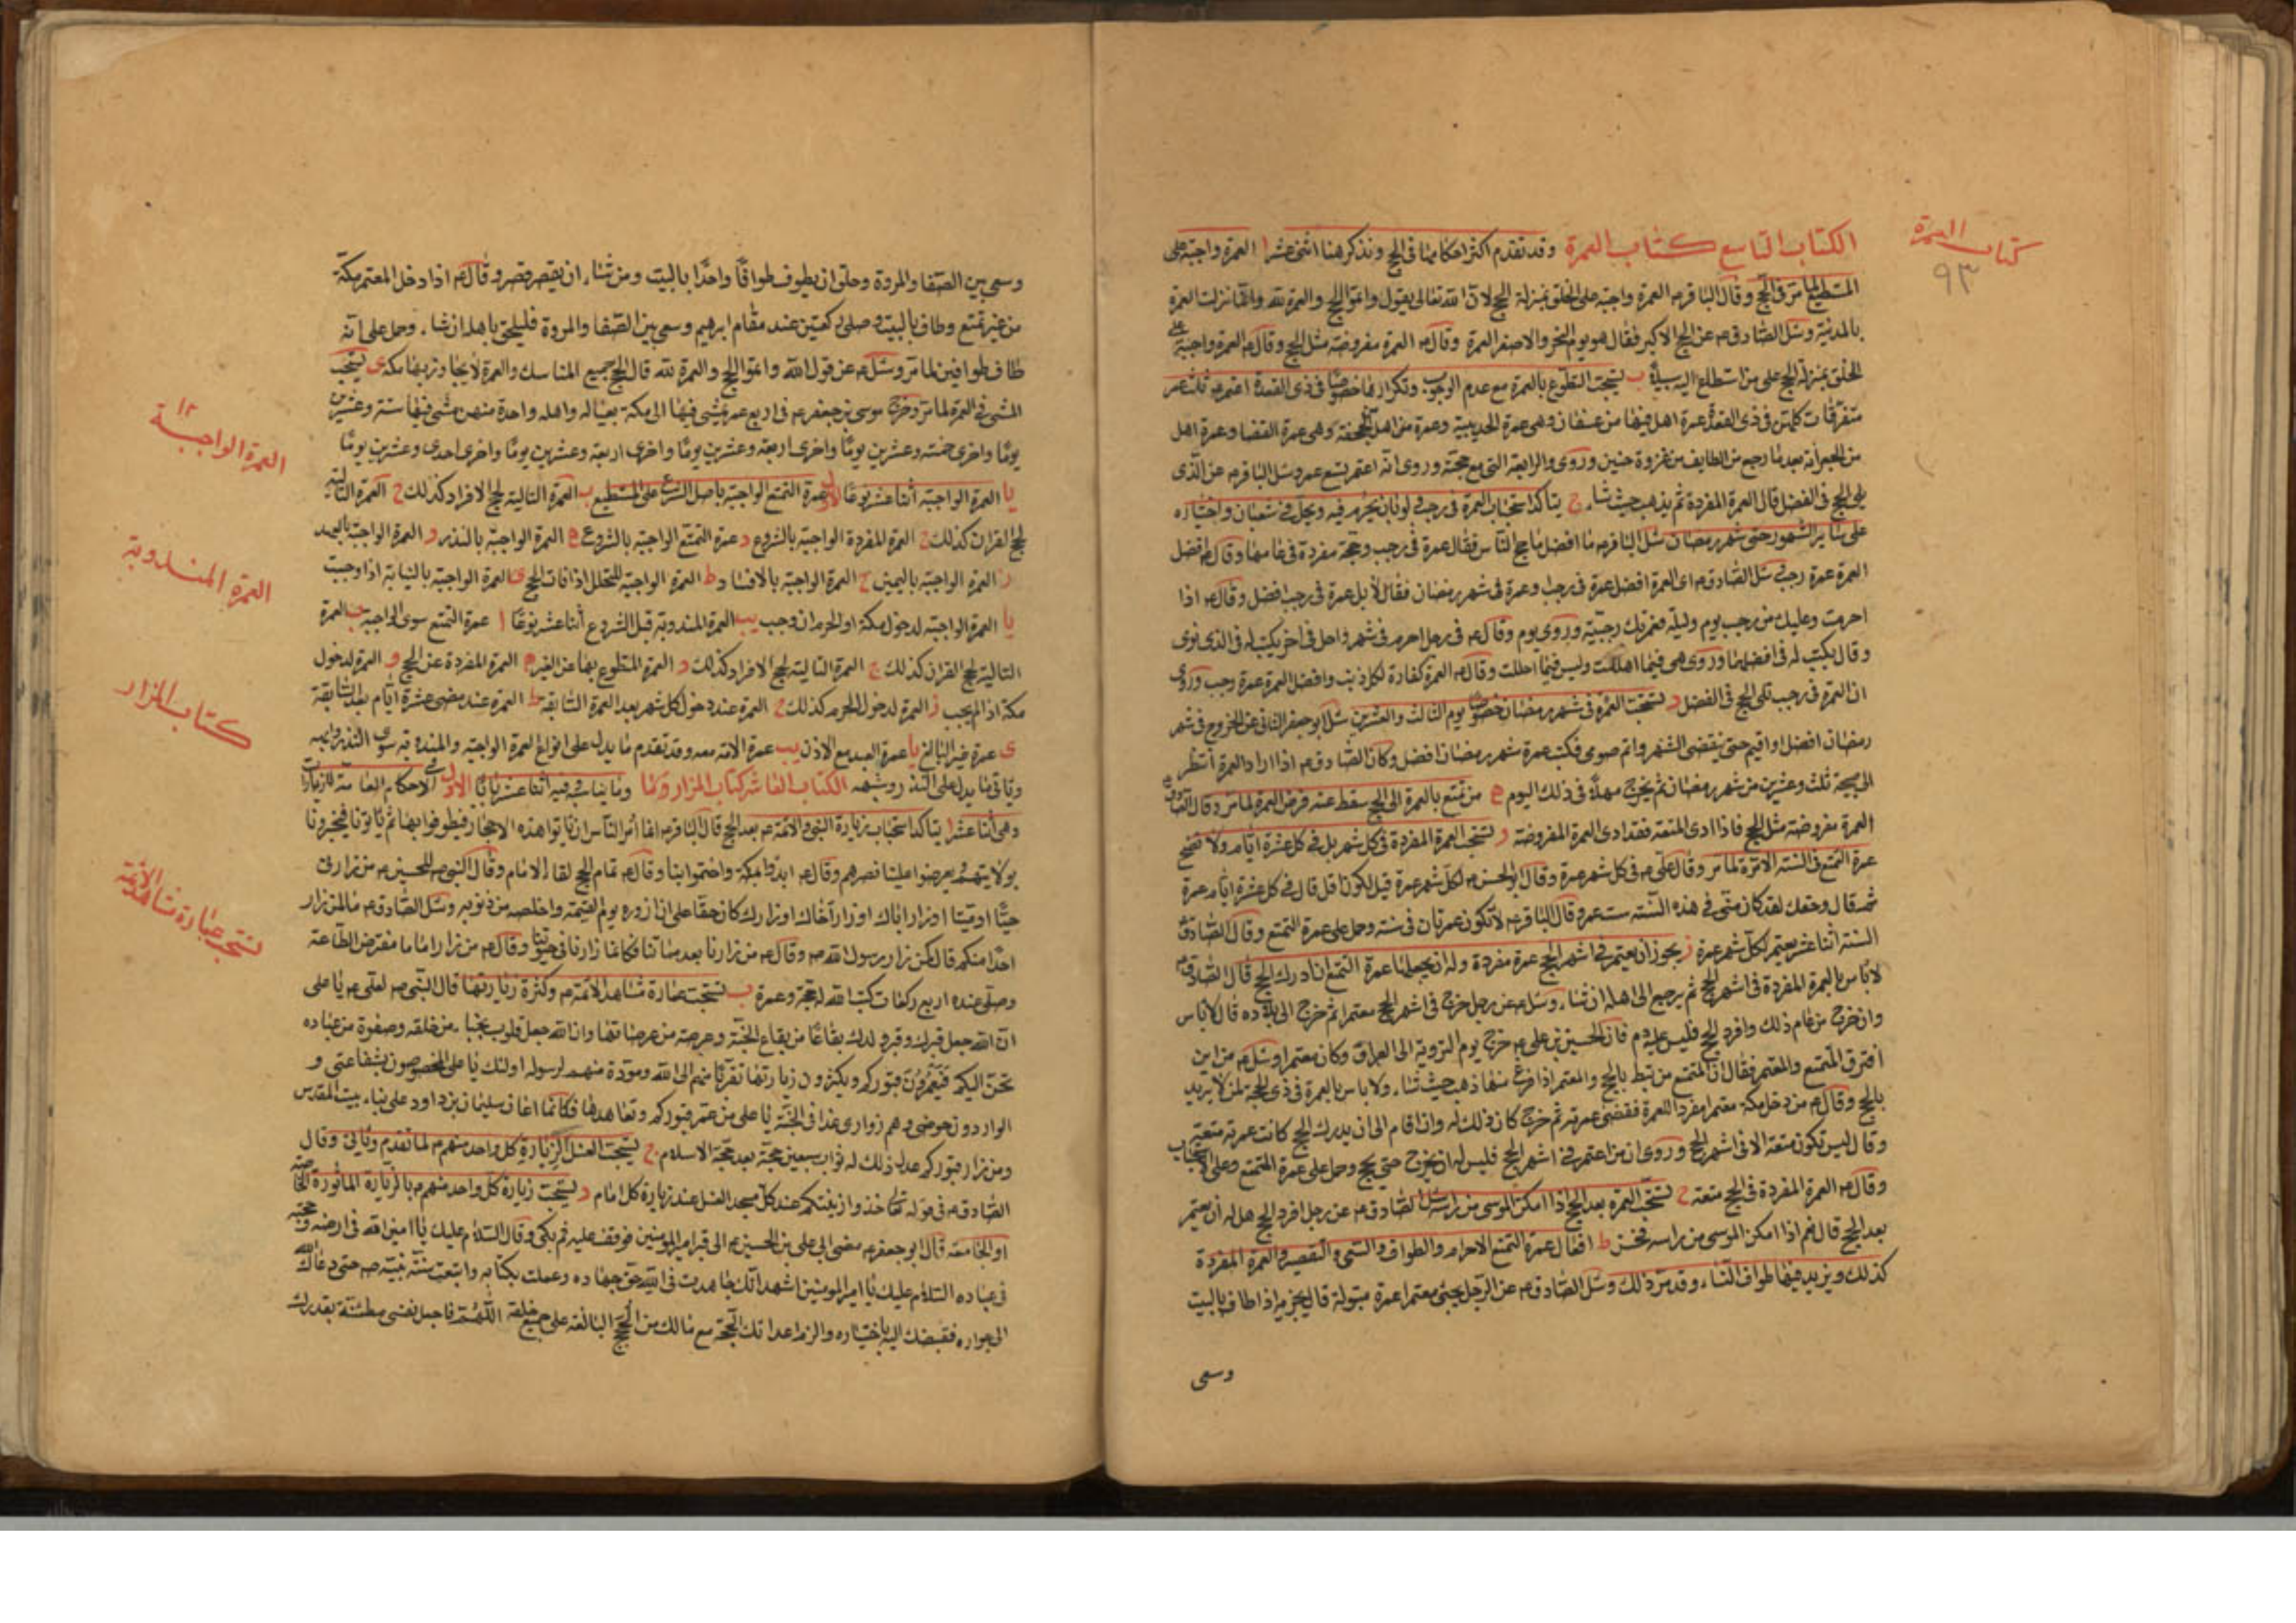 كتاب العمرة
٩٣
الكتاب التاسع كتاب العمرة وقد تقدم اكثر احكامها في الحج ونذكر هنا اثنى عشر ا العمرة واجبة على
المستطيع لما مر في الحج وقال الباقر ع العمرة واجبة على الخلق بمنزلة الحج لان الله تعالى يقول واتموا الحج والعمرة لله وانما نزلت العمرة
بالمدينة وسئل الصادق ع عن الحج الاكبر فقال هو يوم النحر والاصغر العمرة وقال ع العمرة مفروضة مثل الحج وقال ع العمرة واجبة على
الخلق بمنزلة الحج على من استطاع اليه سبيلا ب يستحب التطوع بالعمرة مع عدم الوجوب وتكرارها خصوصا في ذي القعدة اعتمر ص ثلث عمر
متفرقات كلهن في ذي القعدة عمرة اهل فيها من عسفان وهي عمرة الحديبية وعمرة من اهل الجحفة وهي عمرة القضا وعمرة اهل
من الجعرانة بعد ما رجع من الطايف من غزوة حنين وروي والرابعة التي مع حجته وروي انه اعتمر تسع عمر وسئل الباقر ع عن الذي
يلي الحج في الفضل قال العمرة المفردة ثم يذهب حيث شاء ج يتاكد استحباب العمرة في رجب ولو بان يحرم فيه ويحل في شعبان واختياره
على سائر الشهور حتى شهر رمضان سئل الباقر ع ما افضل ما حج الناس فقال عمرة في رجب وحجة مفردة في عامها وقال ع افضل
العمرة عمرة رجب سئل الصادق ع اي العمرة افضل عمرة في رجب وعمرة في شهر رمضان فقال لا بل عمرة في رجب افضل وقال ع اذا
احرمت وعليك من رجب يوم وليلة فعمرتك رجبية وروي يوم وقال ع في رجل احرم في شهر واحل في اخر يكتب له في الذي نوى
وقال يكتب له في افضلهما وروي هي فيما اهللت وليس فيما احللت وقال ع العمرة كفارة لكل ذنب وافضل العمرة عمرة رجب وروي
ان العمرة في رجب تلي الحج في الفضل د يستحب العمرة في شهر رمضان خصوصا يوم الثالث والعشرين سئل ابو جعفر الثاني عن الخروج في شهر
رمضان افضل او اقيم حتى ينقضي الشهر واتم صومي فكتب عمرة شهر رمضان افضل وكان الصادق ع اذا اراد العمرة انتظر
الى صبيحة ثلث وعشرين من شهر رمضان ثم يخرج مهلا في ذلك اليوم ه من تمتع بالعمرة الى الحج سقط عنه فرض العمرة لما مر وقال الصادق ع
العمرة مفروضة مثل الحج فاذا ادى المتعة فقد ادى العمرة المفروضة و يستحب العمرة المفردة في كل شهر بل في كل عشرة ايام ولا تصح
عمرة التمتع في السنة الا مرة لما مر وقال علي ع في كل شهر عمرة وقال ابو الحسن ع لكل شهر عمرة قيل يكون اقل قال في كل عشرة ايام عمرة
ثم قال وحقك لقد كان مني في هذه السنة ست عمر وقال الباقر ع لا تكون عمرتان في سنة وحمل على عمرة التمتع وقال الصادق ع
السنة اثنا عشر يعتمر لكل شهر عمرة ز يجوز ان يعتمر في اشهر الحج عمرة مفردة وله ان يجعلها عمرة التمتع ان ادرك الحج قال الصادق ع
لا باس بالعمرة المفردة في اشهر الحج ثم يرجع الى اهله ان شاء وسئل ع عن رجل خرج في اشهر الحج معتمرا ثم خرج الى بلاده قال لا باس
وان خرج من عام ذلك وافرد الحج فليس عليه دم فان الحسين بن علي ع خرج يوم التروية الى العراق وكان معتمرا وسئل ع من اين
افترق المتمتع والمعتمر فقال ان المتمتع مرتبط بالحج والمعتمر اذا فرغ منها ذهب حيث شاء ولا باس بالعمرة في ذي الحجة لمن لا يريد
الحج وقال ع من دخل مكة معتمرا مفردا للعمرة فقضى عمرته ثم خرج كان ذلك له وان اقام الى ان يدرك الحج كانت عمرته متعة
وقال ليس تكون متعة الا في اشهر الحج وروي ان من اعتمر في اشهر الحج فليس له ان يخرج حتى يحج وحمل على عمرة المتمتع وعلى الاستحباب
وقال ع العمرة المفردة في الحج متعة ح يستحب العمرة بعد الحج اذا امكن الموسى من راسه سئل الصادق ع عن رجل افرد الحج هل له ان يعتمر
بعد الحج قال نعم اذا امكن الموسى من راسه فحسن ط افعال عمرة التمتع الاحرام والطواف والسعي والتقصير والعمرة المفردة
كذلك ويزيد فيها طواف النساء وقد مر ذلك وسئل الصادق ع عن الرجل يجئ معتمرا عمرة مبتولة قال يجزيه اذا طاف بالبيت
وسعى
وسعى بين الصفا والمروة وحلق ان يطوف طوافا واحدا بالبيت ومن شاء ان يقصر قصر وقال ع اذا دخل المعتمر مكة
من غير تمتع وطاف بالبيت وصلى ركعتين عند مقام ابرهيم وسعى بين الصفا والمروة فليلحق باهله ان شاء وحمل على انه
طاف طوافين لما مر وسئل ع عن قول الله واتموا الحج والعمرة لله قال الحج جميع المناسك والعمرة لا يجاوز بها مكة ى يستحب
المشي في العمرة لما مر وخرج موسى بن جعفر ع في اربع عمر يمشي فيها الى مكة بعياله واهله واحدة منهن مشى فيها ستة وعشرين
يوما واخرى خمسة وعشرين يوما واخرى اربعة وعشرين يوما واخرى احدى وعشرين يوما
يا العمرة الواجبة اثنا عشر نوعا الاول عمرة التمتع الواجبة باصل الشرع على المستطيع ب العمرة التالية لحج الافراد كذلك ج العمرة التالية
لحج القران كذلك د العمرة المفردة الواجبة بالشروع د عمرة التمتع الواجبة بالشروع ه العمرة الواجبة بالنذر و العمرة الواجبة بالعهد
ز العمرة الواجبة باليمين ح العمرة الواجبة بالافساد ط العمرة الواجبة للتحلل اذا فات الحج ى العمرة الواجبة بالنيابة اذا وجبت
يا العمرة الواجبة لدخول مكة او الحرم ان وجب يب العمرة المندوبة قبل الشروع اثنا عشر نوعا ا عمرة التمتع سوى الواجبة ب العمرة
التالية لحج القران كذلك ج العمرة التالية لحج الافراد كذلك د العمرة المتطوع بها عن الغير ه العمرة المفردة عن الحج و العمرة لدخول
مكة اذا لم يجب ز العمرة لدخول الحرم كذلك ح العمرة عند دخول كل شهر بعد العمرة السابقة ط العمرة عند مضي عشرة ايام بعد السابقة
ى عمرة غير البالغ يا عمرة العبد مع الاذن يب عمرة الامة معه وقد تقدم ما يدل على انواع العمرة الواجبة والمندوبة سوى النذر وشبهه
وياتي ما يدل على النذر وشبهه الكتاب العاشر كتاب المزار وما يناسبه وفيه اثنا عشر بابا الاول في الاحكام العامة للزيارات
وهي اثنا عشر ا يتاكد استحباب زيارة النبي والائمة ع بعد الحج قال الباقر ع انما امر الناس ان ياتوا هذه الاحجار فيطوفوا بها ثم ياتونا فيخبرونا
بولايتهم ويعرضوا علينا نصرهم وقال ع ابدؤا بمكة واختموا بنا وقال ع تمام الحج لقاء الامام وقال النبي ص للحسين ع من زارني
حيا او ميتا او زار اباك او زار اخاك او زارك كان حقا علي ان ازوره يوم القيمة واخلصه من ذنوبه وسئل الصادق ع ما لمن زار
احدا منكم قال كمن زار رسول الله ص وقال ع من زارنا بعد مماتنا فكانما زارنا في حيوتنا وقال ع من زار اماما مفترض الطاعة
وصلى عنده اربع ركعات كتب الله له حجة وعمرة ب يستحب عمارة مشاهد الائمة ع وكثرة زيارتها قال النبي ص لعلي ع يا علي
ان الله جعل قبرك وقبر ولدك بقاعا من بقاع الجنة وعرصة من عرصاتها وان الله جعل قلوب نجباء من خلقه وصفوة من عباده
تحن اليكم فيعمرون قبوركم ويكثرون زيارتها تقربا منهم الى الله ومودة منهم لرسوله اولئك يا علي المخصوصون بشفاعتي و
الواردون حوضي وهم زواري غدا في الجنة يا علي من عمر قبوركم وتعاهدها فكانما اعان سليمان بن داود على بناء بيت المقدس
ومن زار قبوركم عدل ذلك له ثواب سبعين حجة بعد حجة الاسلام ج يستحب الغسل لزيارة كل واحد منهم ع لما تقدم وياتي وقال
الصادق ع في قوله تعالى خذوا زينتكم عند كل مسجد الغسل عند زيارة كل امام د يستحب زيارة كل واحد منهم ع بالزيارة الماثورة الخاصة
او الجامعة قال ابو جعفر ع مضى ابي علي بن الحسين ع الى قبر امير المؤمنين فوقف عليه ثم بكى وقال السلام عليك يا امين الله في ارضه وحجته
في عباده السلام عليك يا امير المؤمنين اشهد انك جاهدت في الله حق جهاده وعملت بكتابه واتبعت سنة نبيه ص حتى دعاك الله
الى جواره فقبضك اليه باختياره والزم اعدائك الحجة مع مالك من الحجج البالغة على جميع خلقه اللهم فاجعل نفسي مطمئنة بقدرك
العمرة الواجبة ١٢
العمرة المندوبة
كتاب المزار
يستحب عمارة مشاهد الائمة